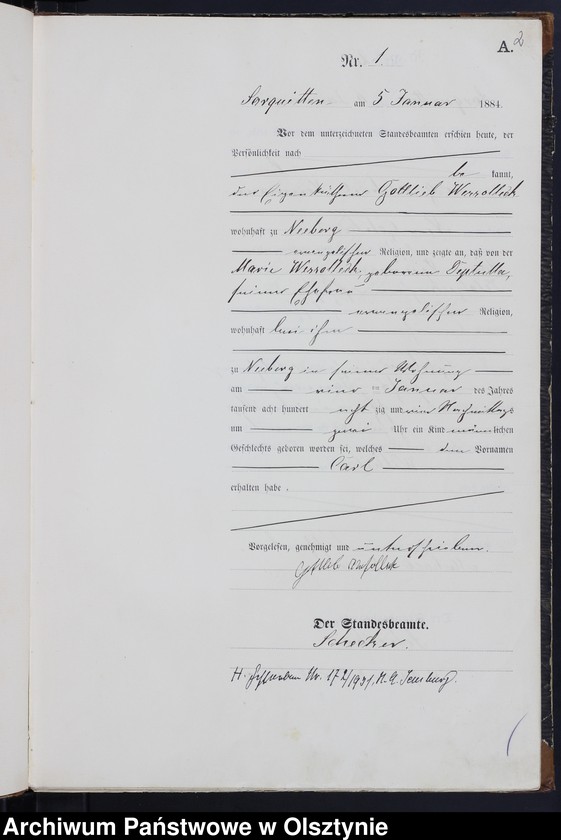 A. 2
Nr. 1.
Sorquitten am 5 Januar 1884.
Vor dem unterzeichneten Standesbeamten erschien heute, der
Persönlichkeit nach
be kannt,
der Eigenkäthner Gottlieb
wohnhaft zu Neuberg
evangelischer Religion, und zeigte an, daß von der
Marie geborenen
seiner Ehefrau
evangelischer Religion,
wohnhaft bei ihm
zu Neuberg in seiner Wohnung
am Januar des Jahres
tausend acht hundert acht zig und vier Nachmittags
um zwei Uhr ein Kind männlichen
Geschlechts geboren worden sei, welches den Vornamen
Carl
erhalten habe.
Vorgelesen, genehmigt und unterschrieben.
Gottlieb
Der Standesbeamte.
Nr.
Archiwum Państwowe w Olsztynie